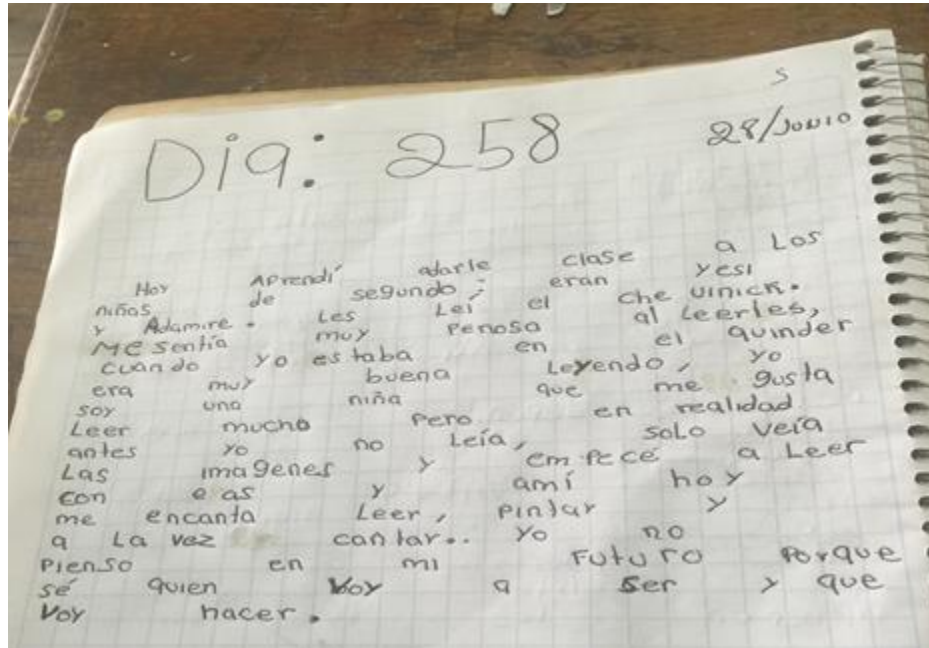 S
Dia: 258 28/JUNIO
Hoy APrendí adarle clase a Los
niños de segundo; erán yesi
y Adamire. Les Leí el che vinick.
Me sentía muy Penosa al Leerles,
cuando yo estaba en el quinder
era muy buena Leyendo, yo
soy una niña que me gusta
Leer mucho Pero en realidad
antes yo no Leía, soLo veía
Las imagenes y empecé a Leer
con e as y amí hoy
me encanta Leer, Pintar y
a La vez cantar.. Yo no
Pienso en mi Futuro Porque
sé quien Voy a Ser y que
Voy hacer.